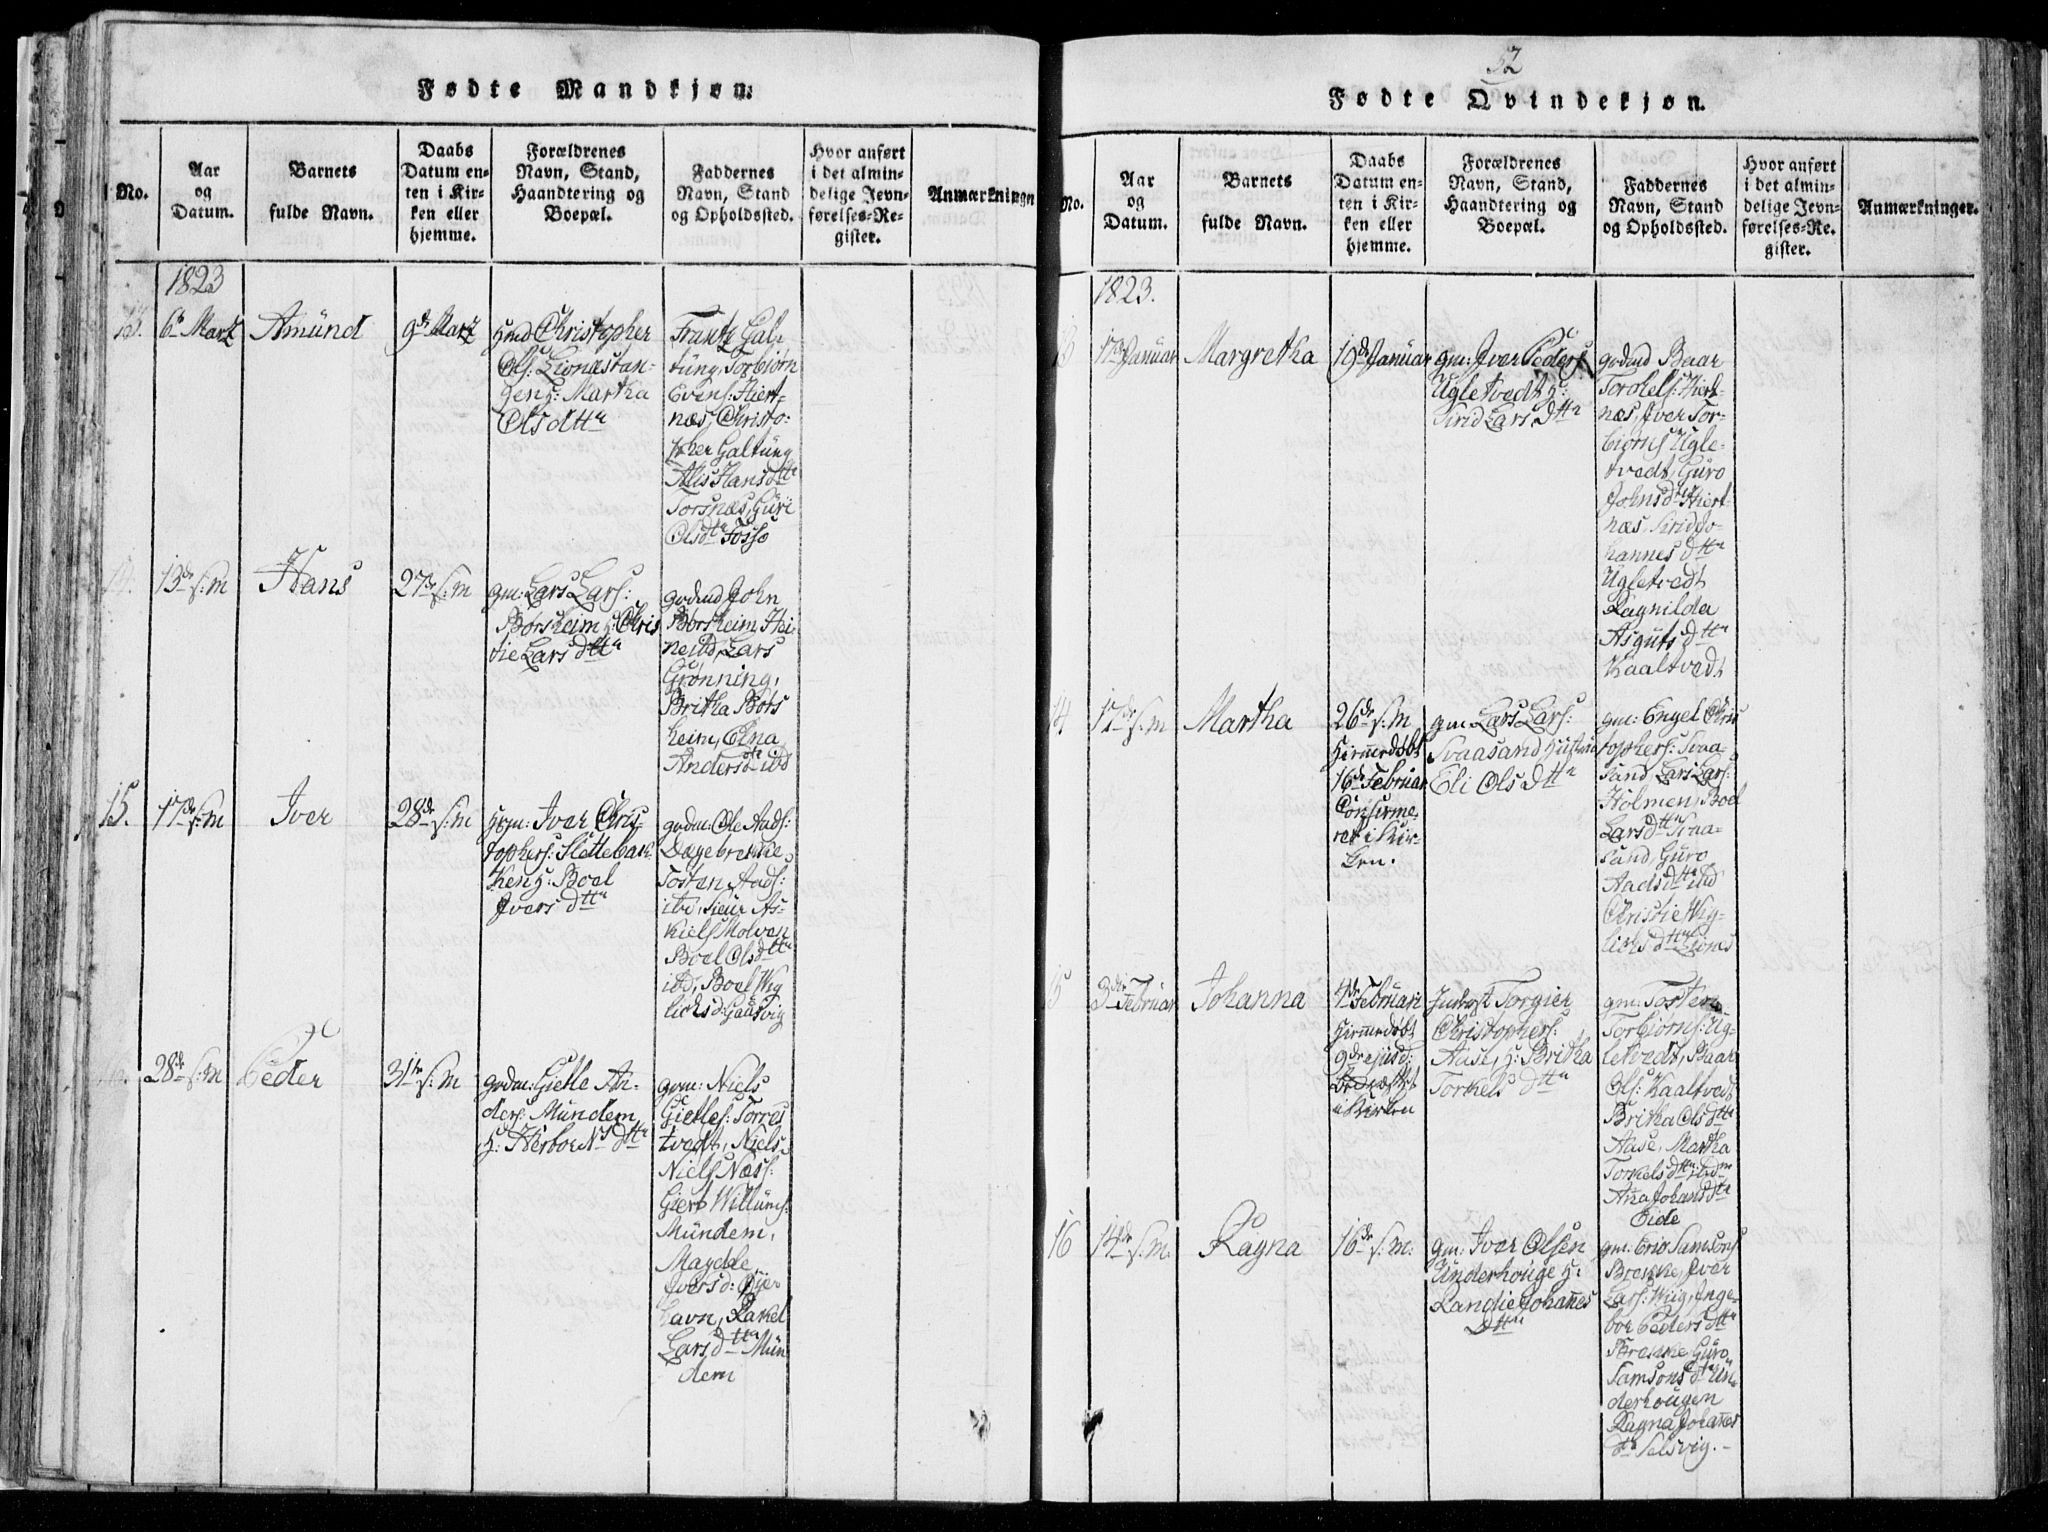 Fødte Mandkjøn.
No.
Aar
og
Datum.
Barnets
fulde Navn.
Daabs
Datum en-
ten i Kir-
ken eller
hjemme.
Forældrenes
Navn, Stand,
Haandtering og
Boepæl.
Faddernes
Navn, Stand
og Opholdssted.
Hvor anført
i det almin-
delige Jevn-
førelses-Re-
gister.
Anmærkninger
1823
13.
6te Martz
Amünd
9de Martz
Christopher
Ols: Lionæstan-
gen H: Martha
Olsdttr
Frantz Gal-
tüng, Torbiørn
Evens: Hiert-
næs, Christo-
pher Galtüng
Alis Hansdttr
Torsnæs, Güri
Olsdttr Fosse
14.
13de s: m
Hans
27de s: m
gm: Lars Lars:
Børsheim H: Chris
tie Lars dttr
godmd John
Børsheim,
Lars
Grønning,
Britha Børs
heim, Elna
Andersdttr ibd
15.
17de s: m
Iver
28de s: m
Iver Chris
tophers: Slettebak
ken H: Boel
Ivers dttr
godm: Ole Aads:
Dægebrekke
Tosten Aads:
ibd, Siur As-
kiels Molven
Boel Olsdttr
ibd, Boel Wig
lichsd: Gaasvig
28de s: m
Peder
31te s: m
godm: Gietle An-
ders: Mündem
H: Herbor Ns dttr
gm: Niels
Gietles: Torres
tvedt, Niels
Niels Næss:
Giert Willums:
Mündem,
Magdle
Iversd: Øjer
havn, Rakel
Lars dttr Mün
dem
52
Fødte Qvindekjøn.
No.
Aar
og
Datum.
Barnets
fulde Navn.
Daabs
Datum en-
ten i Kir-
ken eller
hjemme.
Forældrenes
Navn, Stand,
Haandtering og
Boepæl.
Faddernes
Navn, Stand
og Opholdssted.
Hvor anført
i det almin-
delige Jevn-
førelses-Re-
gister.
Anmærkninger.
1823.
13
17de Januar
Margretha
19de Januar
gm: Iver Peders
Ugletvedt H:
Sirid Lars Dttr
godmd Baar
Torckels: Hiert-
næs, Iver Tor-
biørns Ugle-
tvedt, Guro
Johnsdttr Hiert
næs, Sirid Jo-
hannes dttr
Ugletvedt
Ragnilda
Asguts dttr
Kaaltvedt
14
17de s: m
Martha
26de s: m
Hiemmedøbt
16de Februar
Confirme-
ret i Kir-
ken.
gm Lars Lars:
Svaasand Hustru
Eli Ols Dttr
gm: Engel Chris
tophers: Svaa-
sand, Lars Lars:
Holmen, Boel
Larsdttr Svaa-
sand, Guro
Aadsdttr ibd
Christie Wig-
lichs dttr Liones
15
3die Februar
Johanna
4de Februari
Hiemmedøbt
9de ejusd:
i Kirken
Torgier
Christophers:
Aase, H: Britha
Torkels Dttr
gm: Tosten
Torbiørns: Ug-
letvedt, Baar
Ols: Kaaltvedt
Britha Olsdttr
Aase, Martha
Torkelsdttr ibdm
Ana Johansdttr
Eide
16
14de s: m.
Ragna
16de s: m.
gm: Iver Olsen
Underhouge H:
Randie Johannes
Dttr
gm: Eric Samsons
Brekke, Iver
Lars: Wiig, Inge-
bor Peders dttr
Brekke, Guro
Samsonsdttr Un-
derhougen
Ragna Johannes
dttr Selsvig.